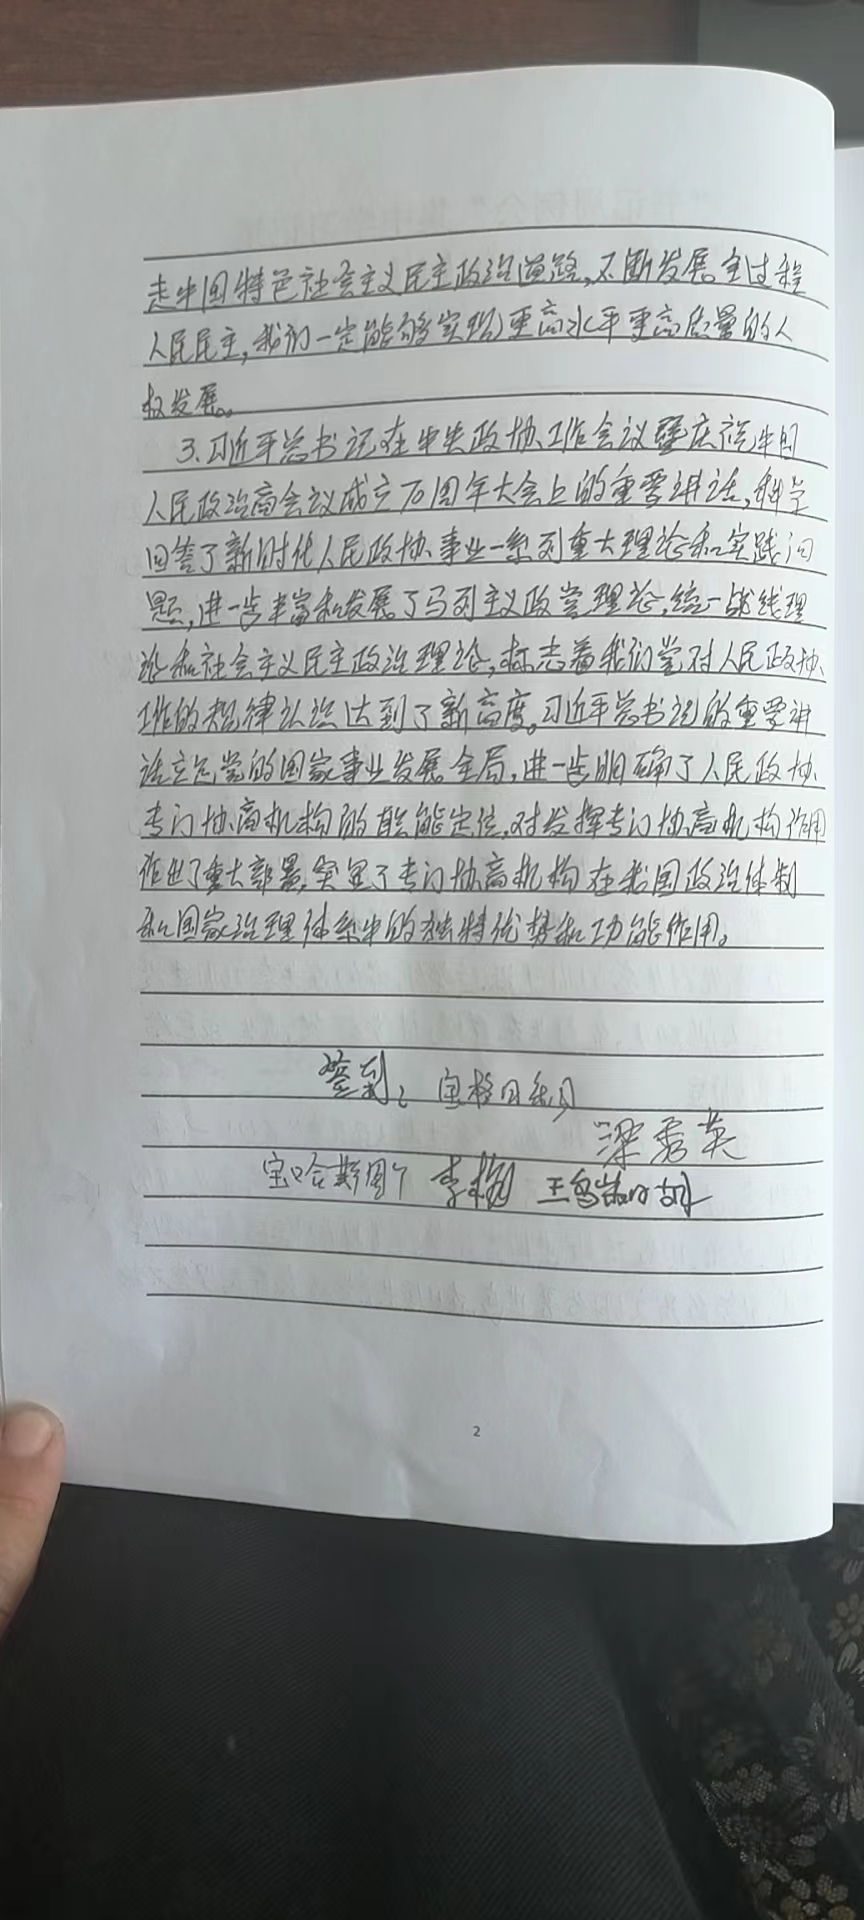 走中国特色社会主义民主政治道路，不断发展全过程
人民民主，我们一定能够实现更高水平更高质量的人
权发展。
3.习近平总书记在中央政协工作会议暨庆祝中国
人民政治商会议成立70周年大会上的重要讲话，科学
回答了新时代人民政协事业一系列重大理论和实践问
题，进一步丰富和发展了马列主义政党理论，统一战线理
论和社会主义民主政治理论，标志着我们党对人民政协
工作的规律认识达到了新高度。习近平总书记的重要讲
话立足党的国家事业发展全局，进一步明确了人民政协
专门协商机构的职能定位，对发挥专门协商机构作用
作出了重大部署，突显了专门协商机构在我国政治体制
和国家治理体系中的独特优势和功能作用。
签到：
梁秀英
宝哈斯图 李梅
2